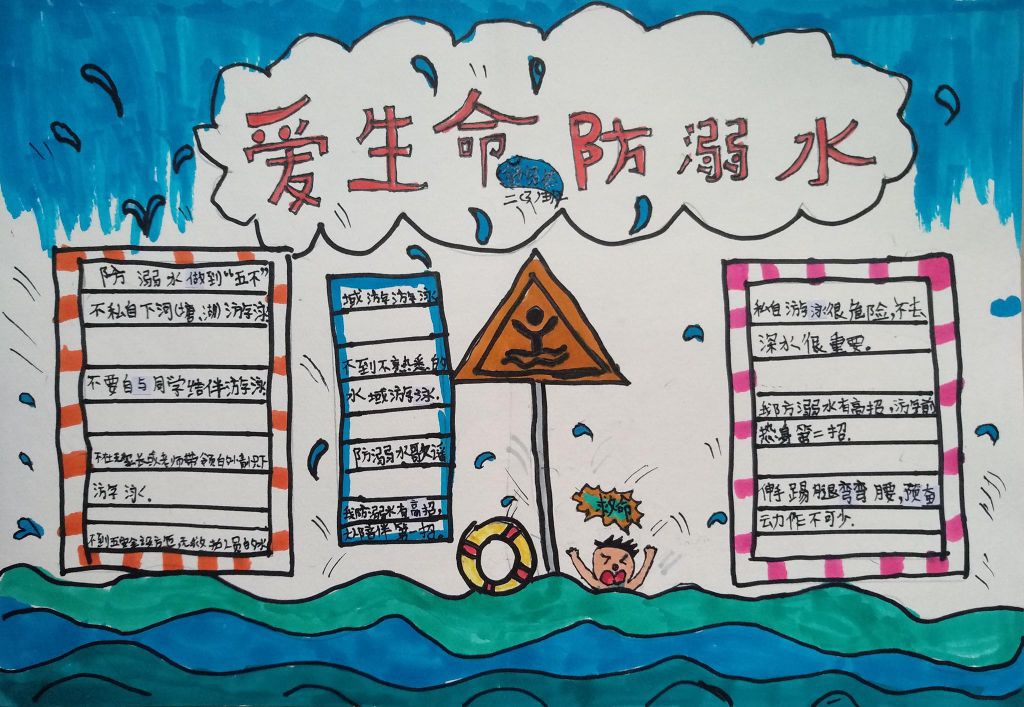 爱生命防溺水
二(2)班
防溺水做到“五不”
不私自下河(塘、湖)游泳
不要自与同学结伴游泳
不在无家长或老师带领自的情况下
游泳.
不到无安全设施,无救护人员的水
域游泳
不到不熟悉的
水域游泳.
防溺水歌谣
我防溺水有高招,
救命
私自游泳很危险,不去
深水很重要.
我防溺水有高招,游泳前
热身第二招.
伸手踢腿弯弯腰,预备
动作不可少.